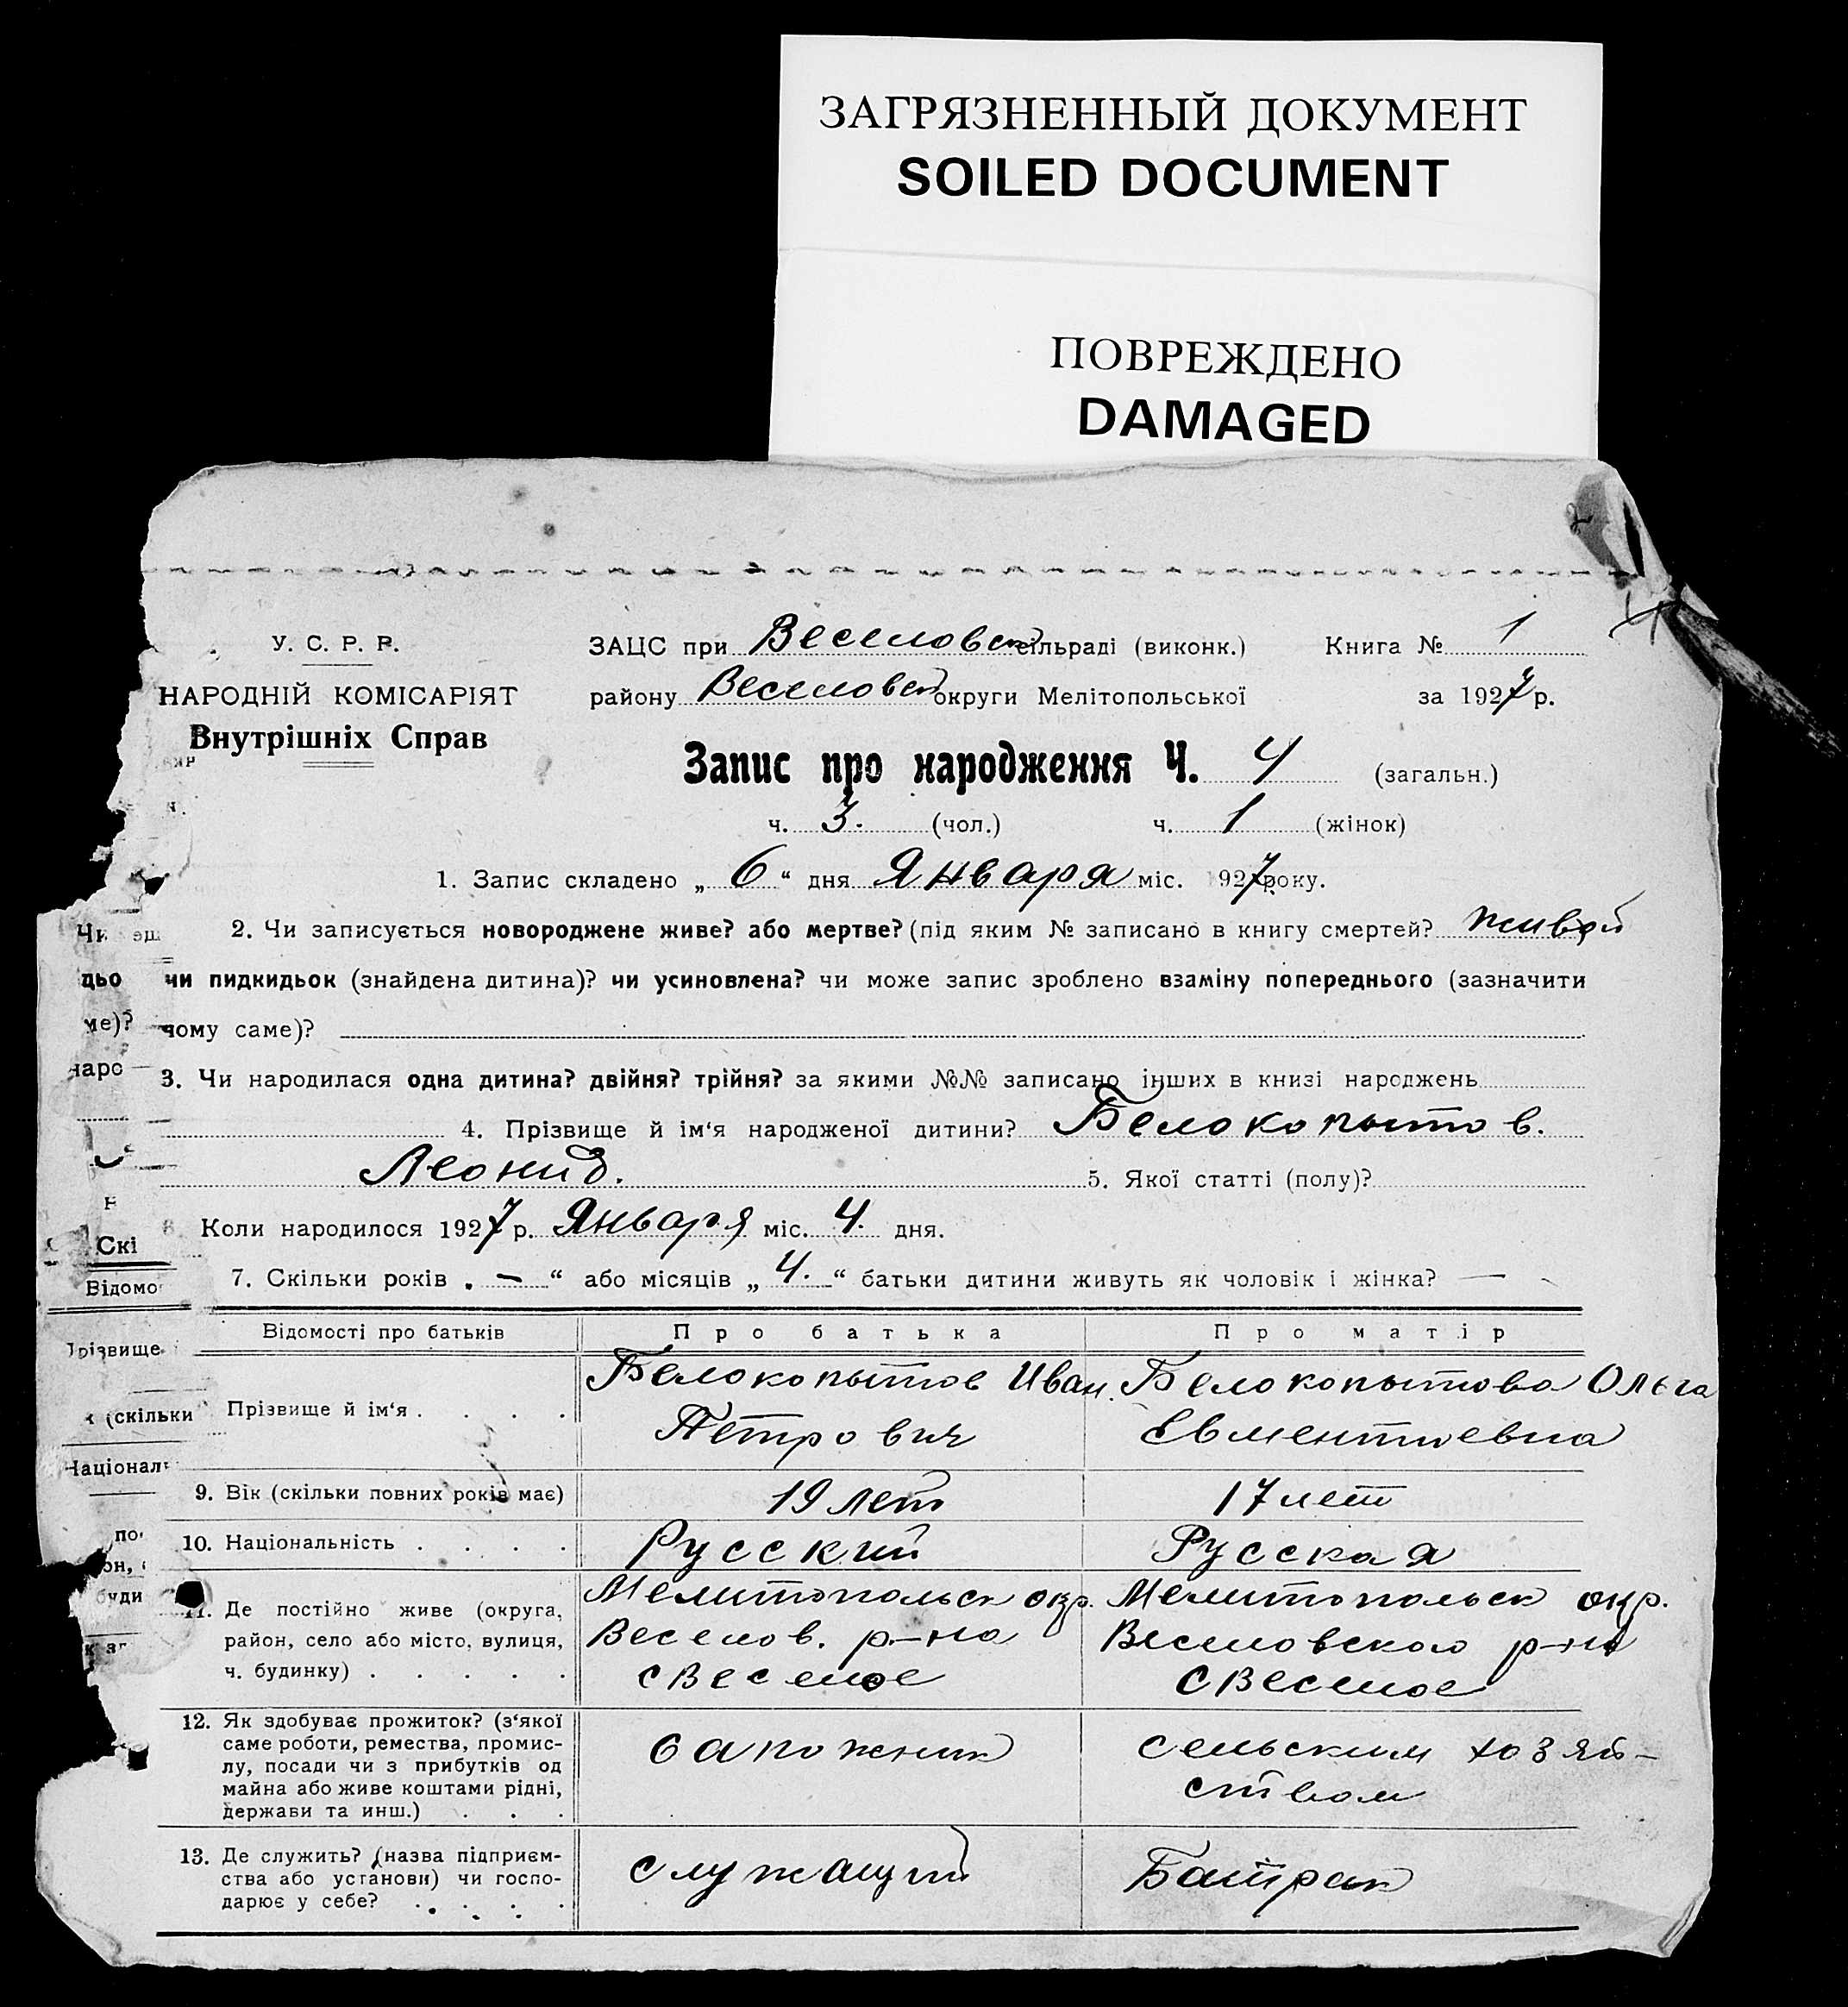 ЗАГРЯЗНЕННЫЙ ДОКУМЕНТ
SOILED DOCUMENT
ПОВРЕЖДЕНО
DAMAGED
У. С. Р. Р.
НАРОДНІЙ КОМІСАРІЯТ
Внутрішніх Справ
ЗАЦС при Веселовск сільраді (виконк.) Книга № 1
району Веселовск округи Мелітопольської за 1927 р.
Запис про народження Ч. 4 (загальн.)
ч. 3. (чол.) ч. 1 (жінок)
1. Запис складено „ 6 “ дня Января міс. 1927 року.
2. Чи записується новороджене живе? або мертве? (під яким № записано в книгу смертей? живой
чи пидкидьок (знайдена дитина)? чи усиновлена? чи може запис зроблено взаміну попереднього (зазначити
чому саме)?
3. Чи народилася одна дитина? двійня? трійня? за якими №№ записано інших в книзі народжень
4. Прізвище й ім‘я народженої дитини? Белокопытов.
Леонид. 5. Якої статті (полу)?
Коли народилося 1927 р. Января міс. 4. дня.
7. Скільки років „ — “ або місяців „ 4. “ батьки дитини живуть як чоловік і жінка? —
Відомості про батьків Про батька Про матір
Прізвище й ім‘я . . . . Белокопытов Иван Петрович Белокопытова Ольга Евментиевна
9. Вік (скільки повних років має) 19 лет 17 лет
10. Національність . . . . Русский Русская
11. Де постійно живе (округа, Мелитопольск окр. Мелитопольск окр.
район, село або місто, вулиця, Веселов. р-на Веселовского р-на
ч. будинку) . . . . . с Веселое с Веселое
12. Як здобуває прожиток? (з‘якої
саме роботи, ремества, промис- сапожник сельским хозяй-
лу, посади чи з прибутків од
майна або живе коштами рідні, ством
держави та инш.) . . .
13. Де служить? (назва підприєм-
ства або установи) чи госпо- служащий Батрак
дарює у себе? . . . .